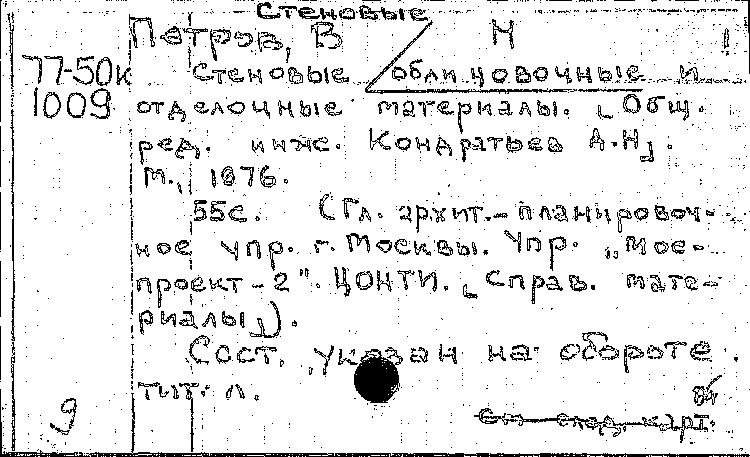 Стеновые
Петров, В Н
77-50к Стеновые облицовочные и
1009 отделочные материалы. [Общ.
ред. инж. Кондратьев А.Н].
М., 1976.
55с. (Гл. архит.-планировоч-
ное упр. г. Москвы. Упр. „Мос-
проект-2". ЦОНТИ. [Справ. мате-
риалы]).
Сост. указан на обороте
тит. л.
9 См след. карт.